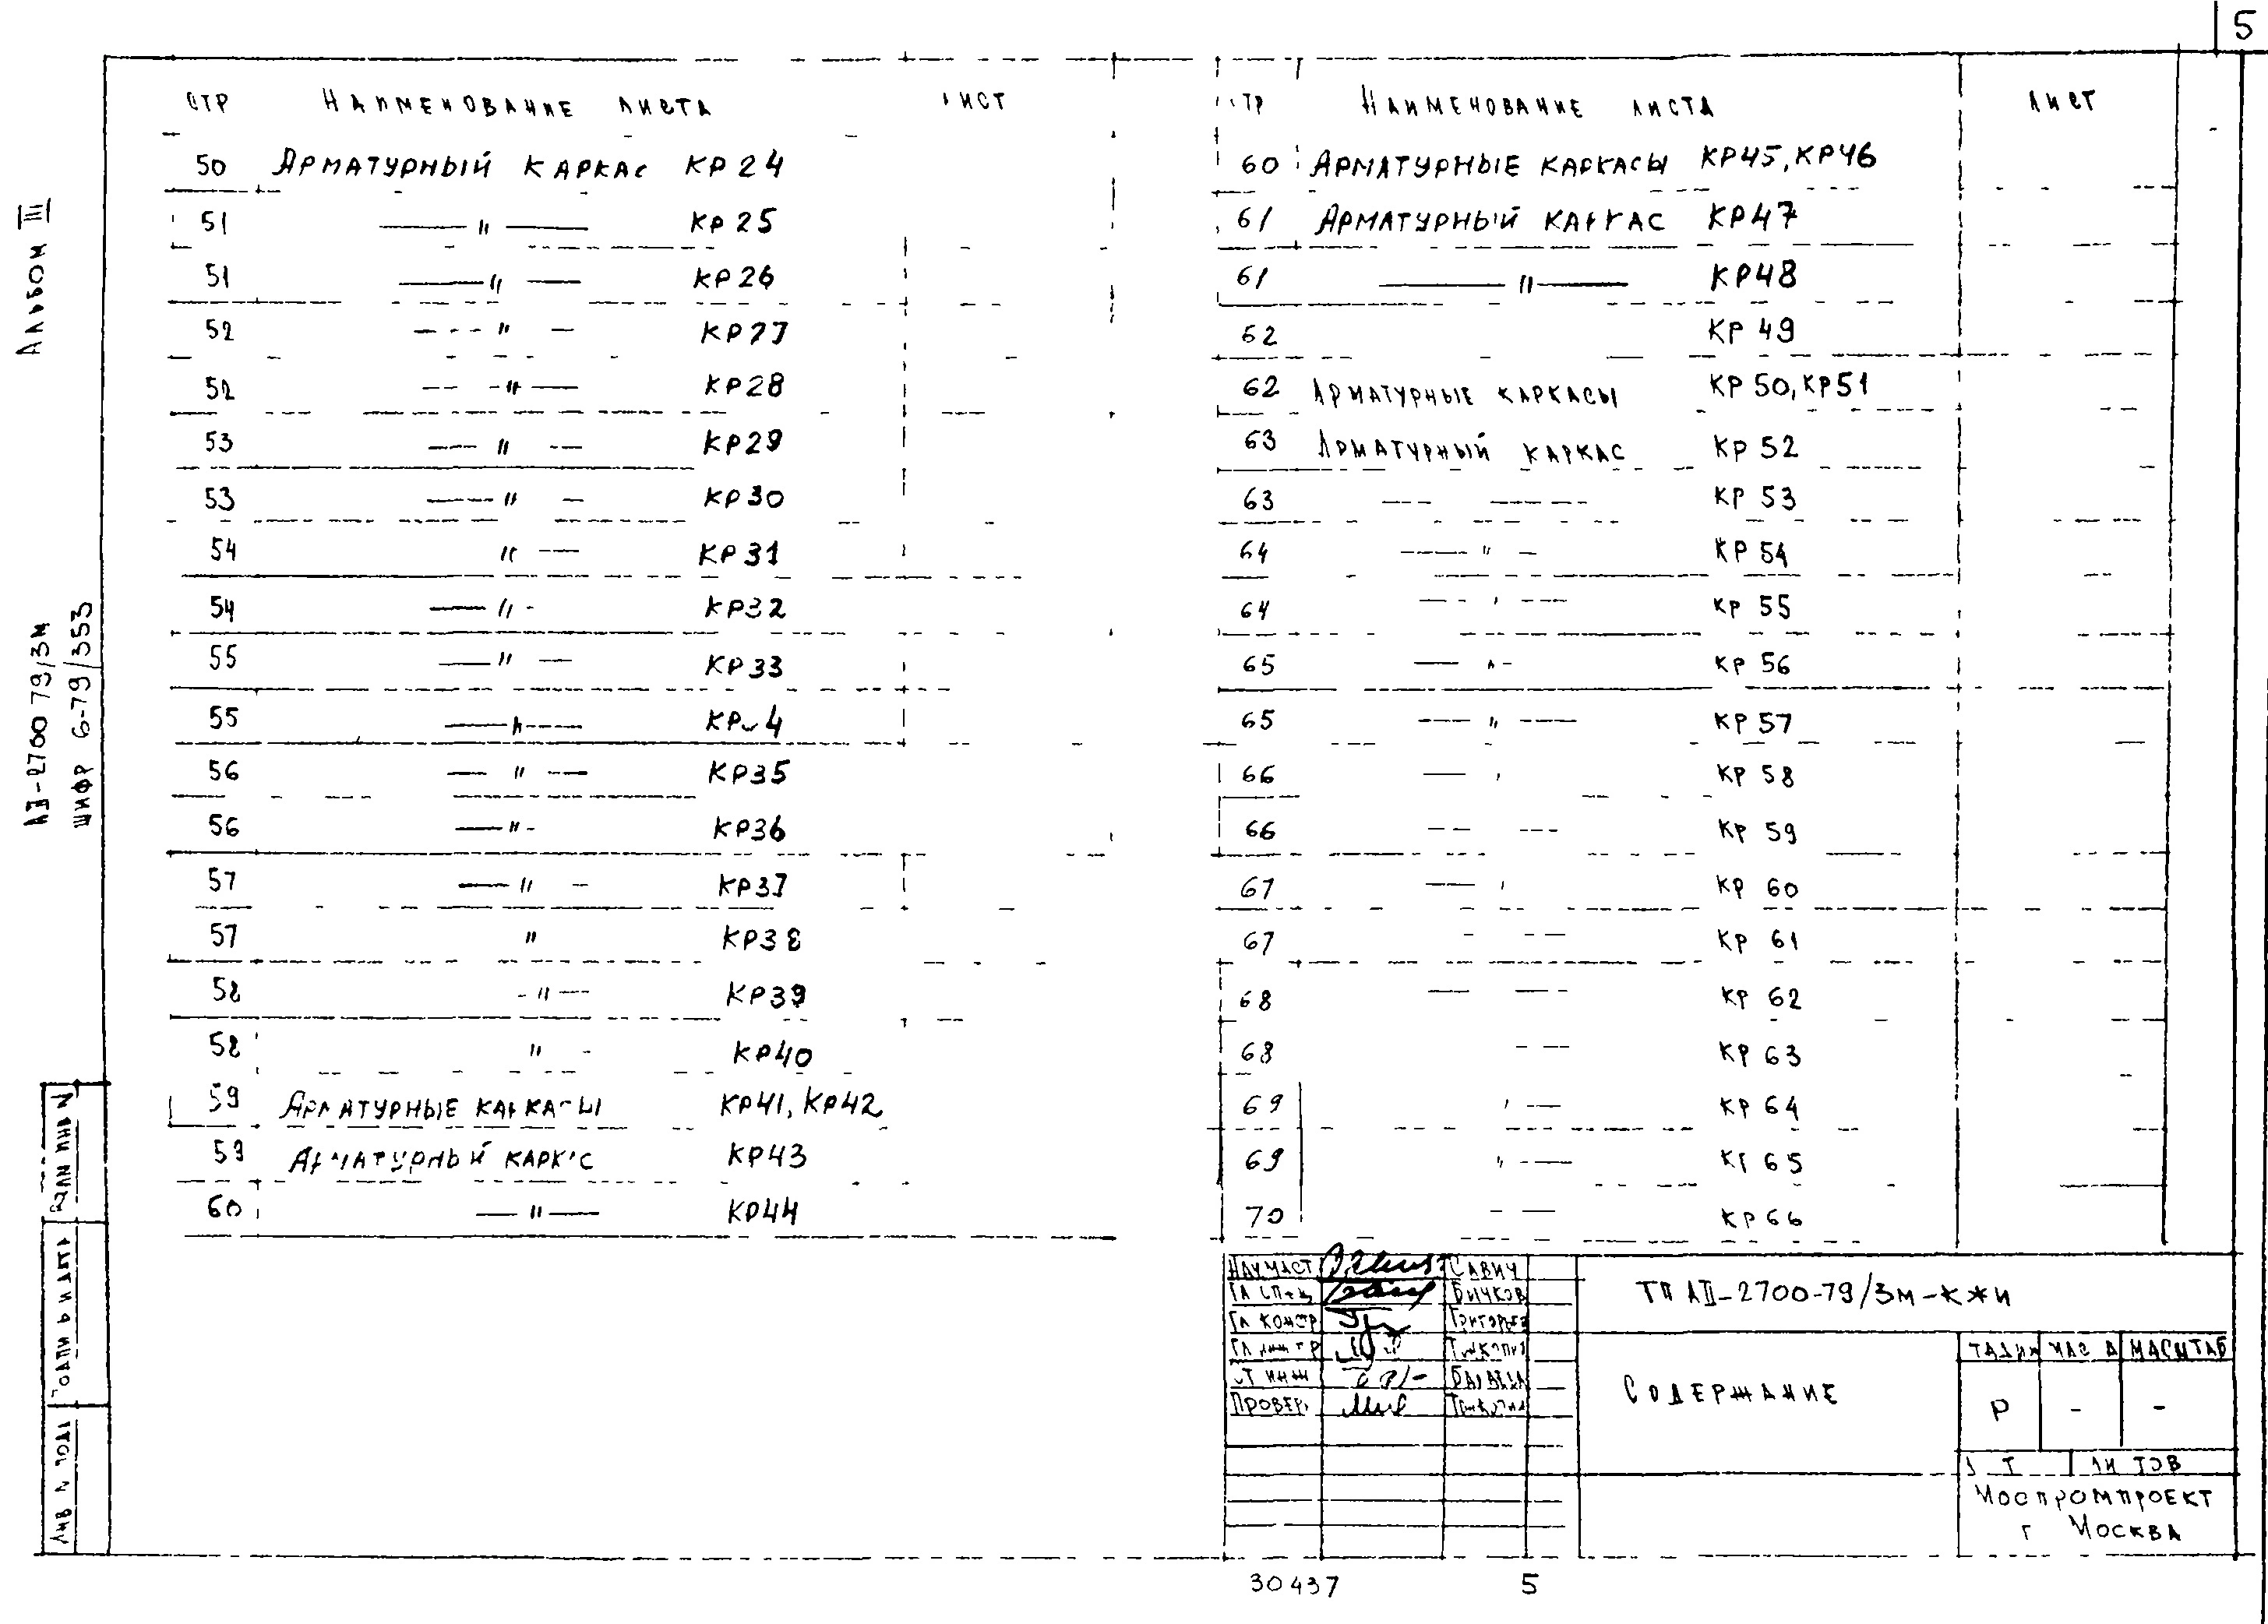 5
Альбом III
АII-2700 79/3м
шифр 6-79/353
стр Наименование листа лист
50 Арматурный каркас КР24
51 —〃— КР25
51 —〃— КР26
52 —〃— КР27
52 —〃— КР28
53 —〃— КР29
53 —〃— КР30
54 〃— КР31
54 —〃- КР32
55 —〃— КР33
55 —〃— КР34
56 —〃— КР35
56 —〃- КР36
57 —〃— КР37
57 〃 КР38
58 -〃— КР39
58 〃 - КР40
59 Арматурные каркасы КР41, КР42
59 Арматурный каркас КР43
60 —〃— КР44
стр Наименование листа лист
60 Арматурные каркасы КР45, КР46
61 Арматурный каркас КР47
61 —〃— КР48
62 КР 49
62 Арматурные каркасы КР 50, КР51
63 Арматурный каркас КР 52
63 — — КР 53
64 —〃— КР 54
64 — — КР 55
65 —〃- КР 56
65 —〃— КР 57
66 — КР 58
66 — — КР 59
67 — КР 60
67 - — КР 61
68 — — КР 62
68 - — КР 63
69 — КР 64
69 〃— КР 65
70 - — КР 66
Нач маст Савич
Гл спец Бичков
Гл констр Григорьев
Гл инж пр
ст инж
Провер.
ТП АII-2700-79/3м-КЖИ
Содержание
стадия масса масштаб
Р - -
лист листов
Моспромпроект
г Москва
Взам инв №
Подпись и дата
Инв № подл
30437 5